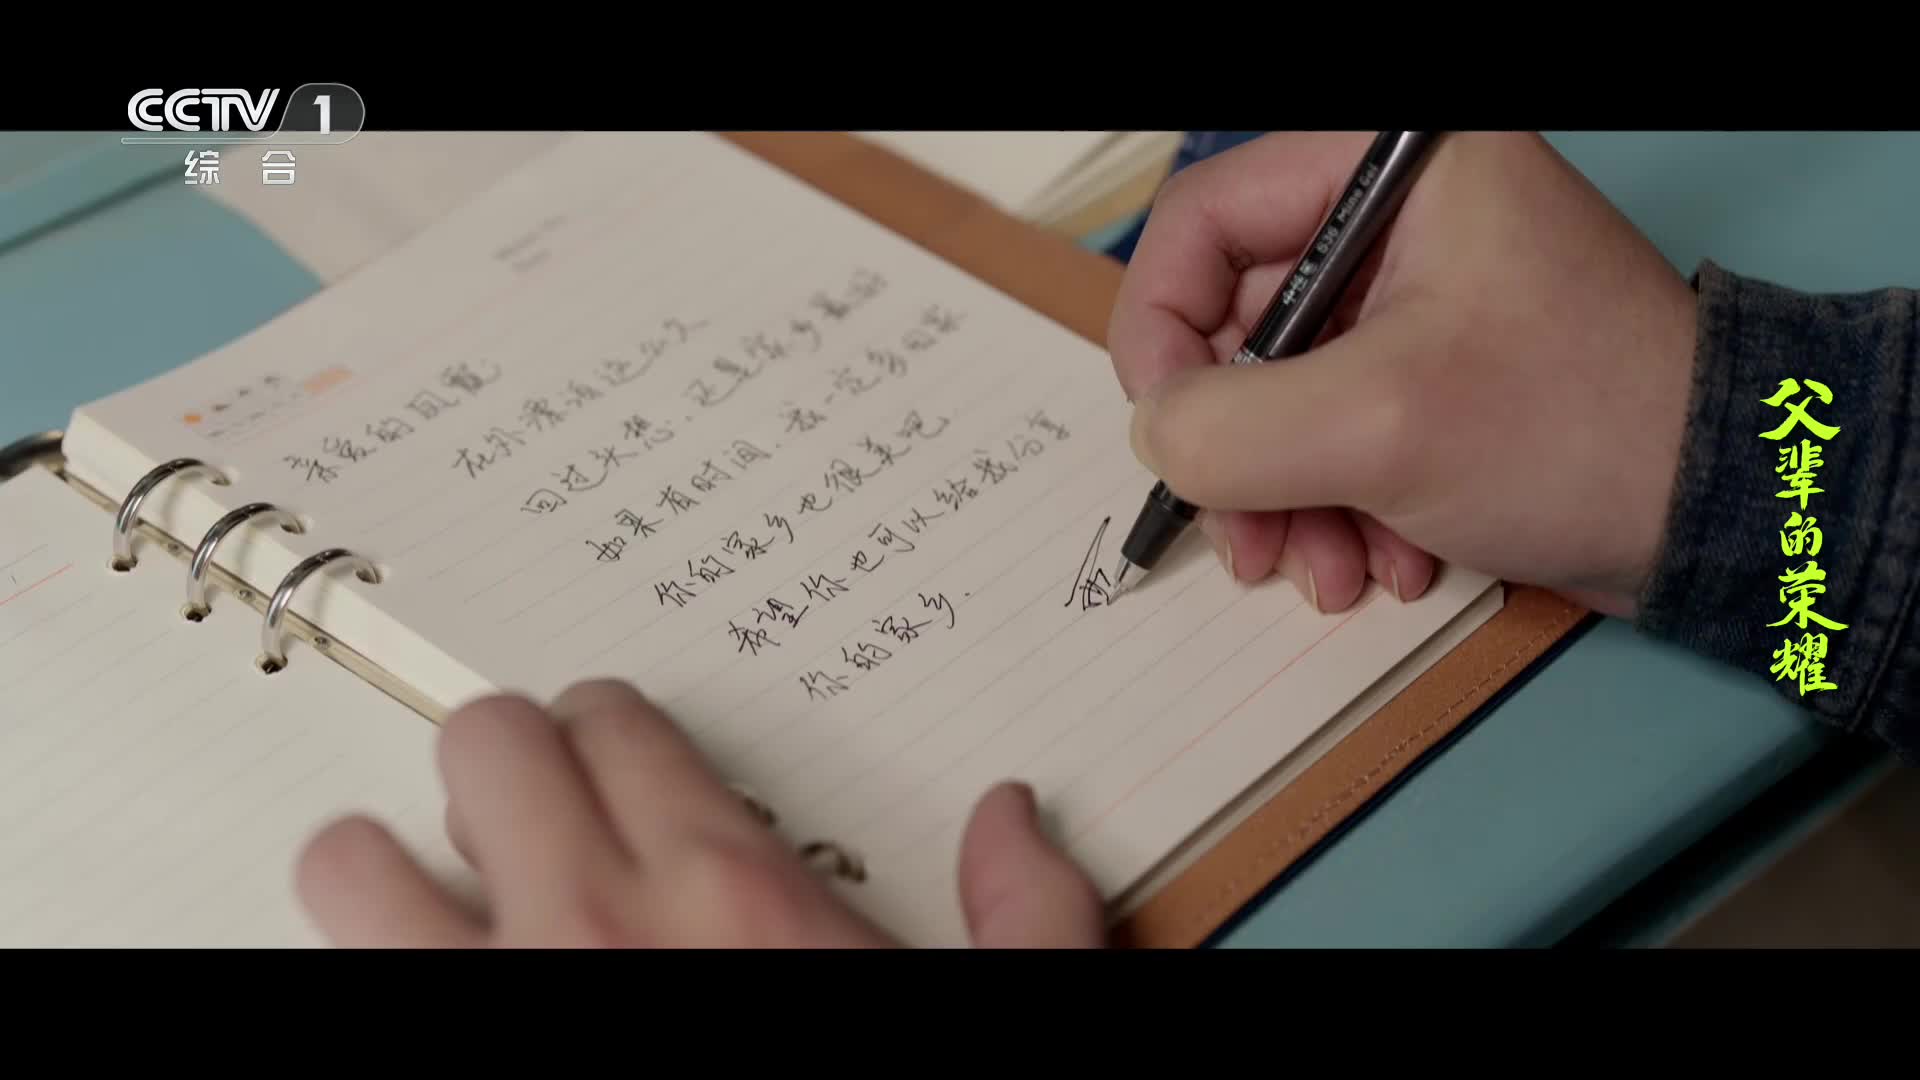 CCTV 1
综合
亲爱的凤霞:
在外漂泊这么久
回过头想,还是家乡最好
如果有时间,我一定多回家
你的家乡也很美吧
希望你也可以给我分享
你的家乡.
中性笔 S36 Mine Gel
父辈的荣耀